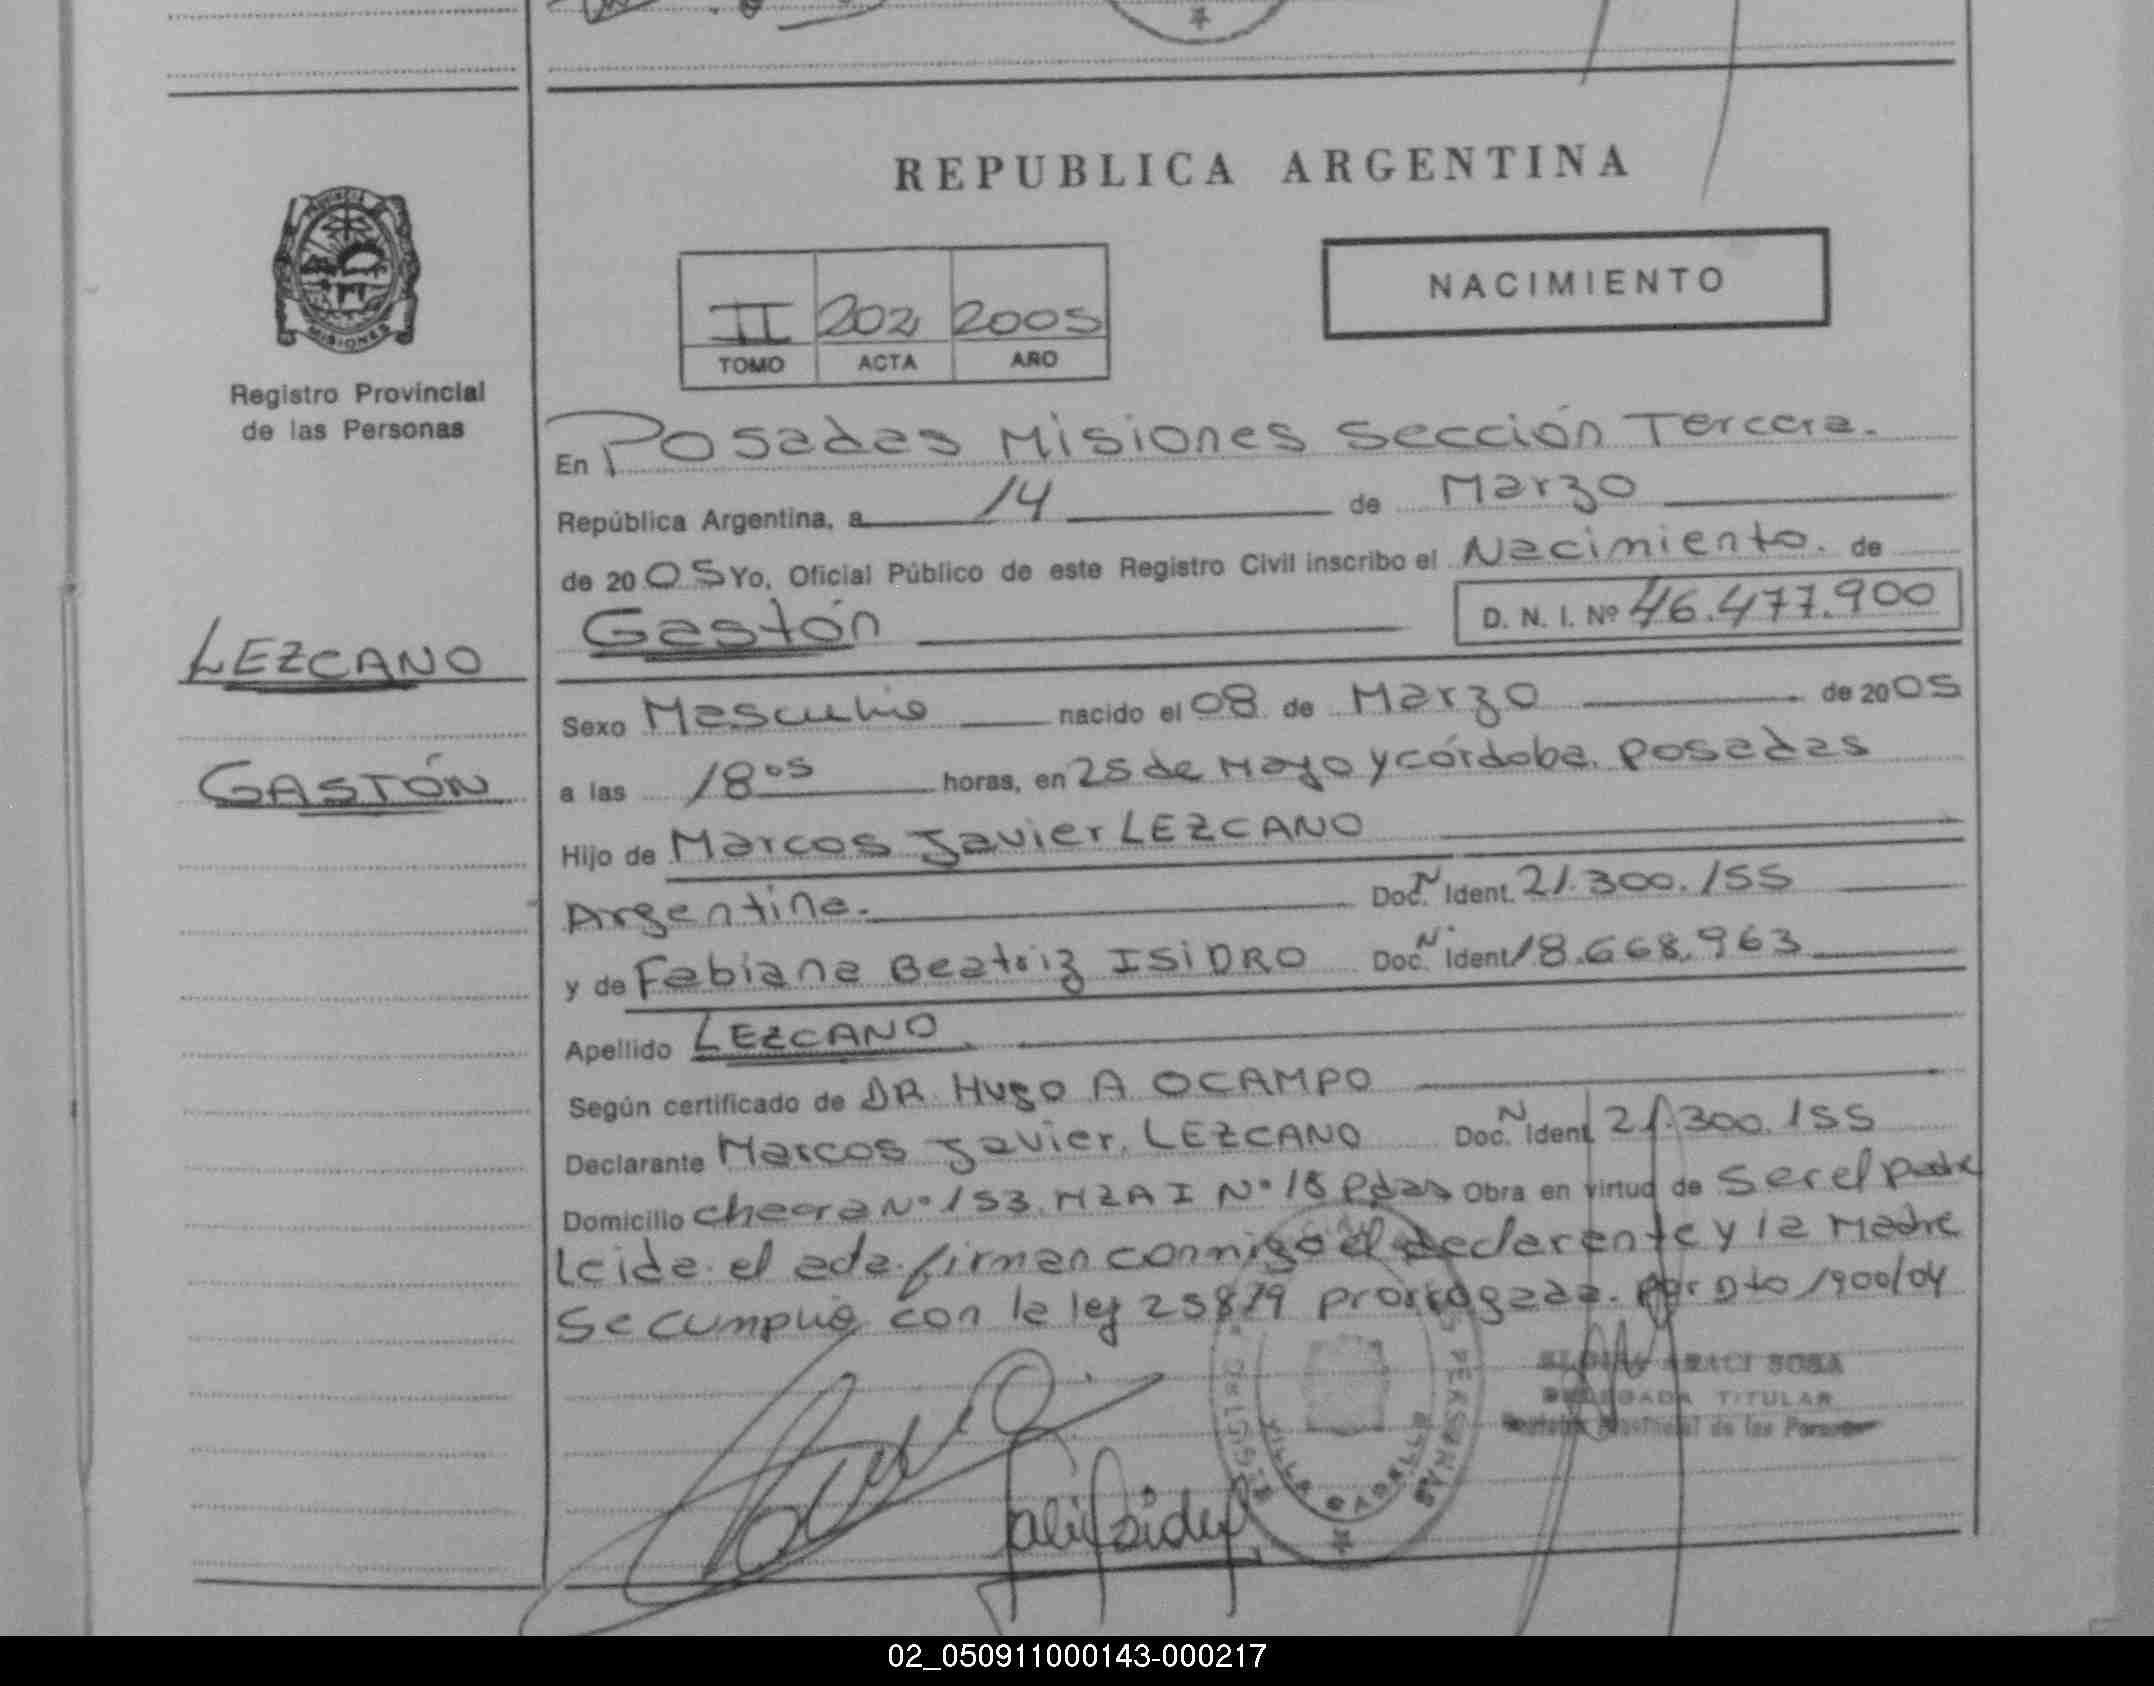 REPUBLICA ARGENTINA
NACIMIENTO
II 202 2005
TOMO ACTA AÑO
MISIONES
Registro Provincial
de las Personas
LEZCANO
GASTÓN
En Posadas Misiones Sección Tercera.
República Argentina, a 14 de Marzo
de 2005 Yo, Oficial Público de este Registro Civil inscribo el Nacimiento. de
Gastón D. N. I. Nº 46.477.900
Sexo Masculino nacido el 08 de Marzo de 2005
a las 18 05 horas, en 25 de Mayo y córdoba. Posadas
Hijo de Marcos Javier LEZCANO
Argentina. Doc. N Ident. 21.300.155
y de Fabiana Beatriz ISIDRO Doc. N Ident 18.668.963
Apellido LEZCANO
Según certificado de DR. Hugo A OCAMPO
Declarante Marcos Javier. LEZCANO Doc. N Ident 21.300.155
Domicilio chacra Nº 153. MZA I Nº 18 Pdas Obra en virtud de Ser el padre
Leida el acta firman conmigo el declarante y la Madre
Se cumplió con la ley 25819 prorrogada. Por Dto 1900/04
ARACI SOSA
DELEGADA TITULAR
Registro Provincial de las Personas
REGISTRO PERSONAS
VILLA
02_050911000143-000217